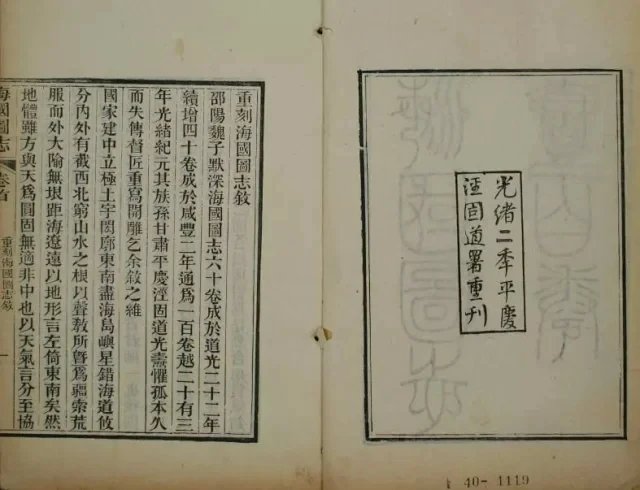 光緒二季平慶
涇固道署重刊
重刻海國圖志敘
邵陽魏子默深海國圖志六十卷成於道光二十二年
續增四十卷成於咸豐二年通爲一百卷越二十有三
年光緒紀元其族孫甘肅平慶涇固道光燾懼孤本久
而失傳督匠重寫開雕乞余敘之維
國家建中立極土宇閎廓東南盡海島嶼星錯海道攸
分內外有截西北窮山水之根以聲敎所曁爲疆索荒
服而外大隃無垠距海遼遠以地形言左倚東南矣然
地體雖方與天爲圓固無適非中也以天氣言分至協
海國圖志 卷首 重刻海國圖志敘 一
40-1119